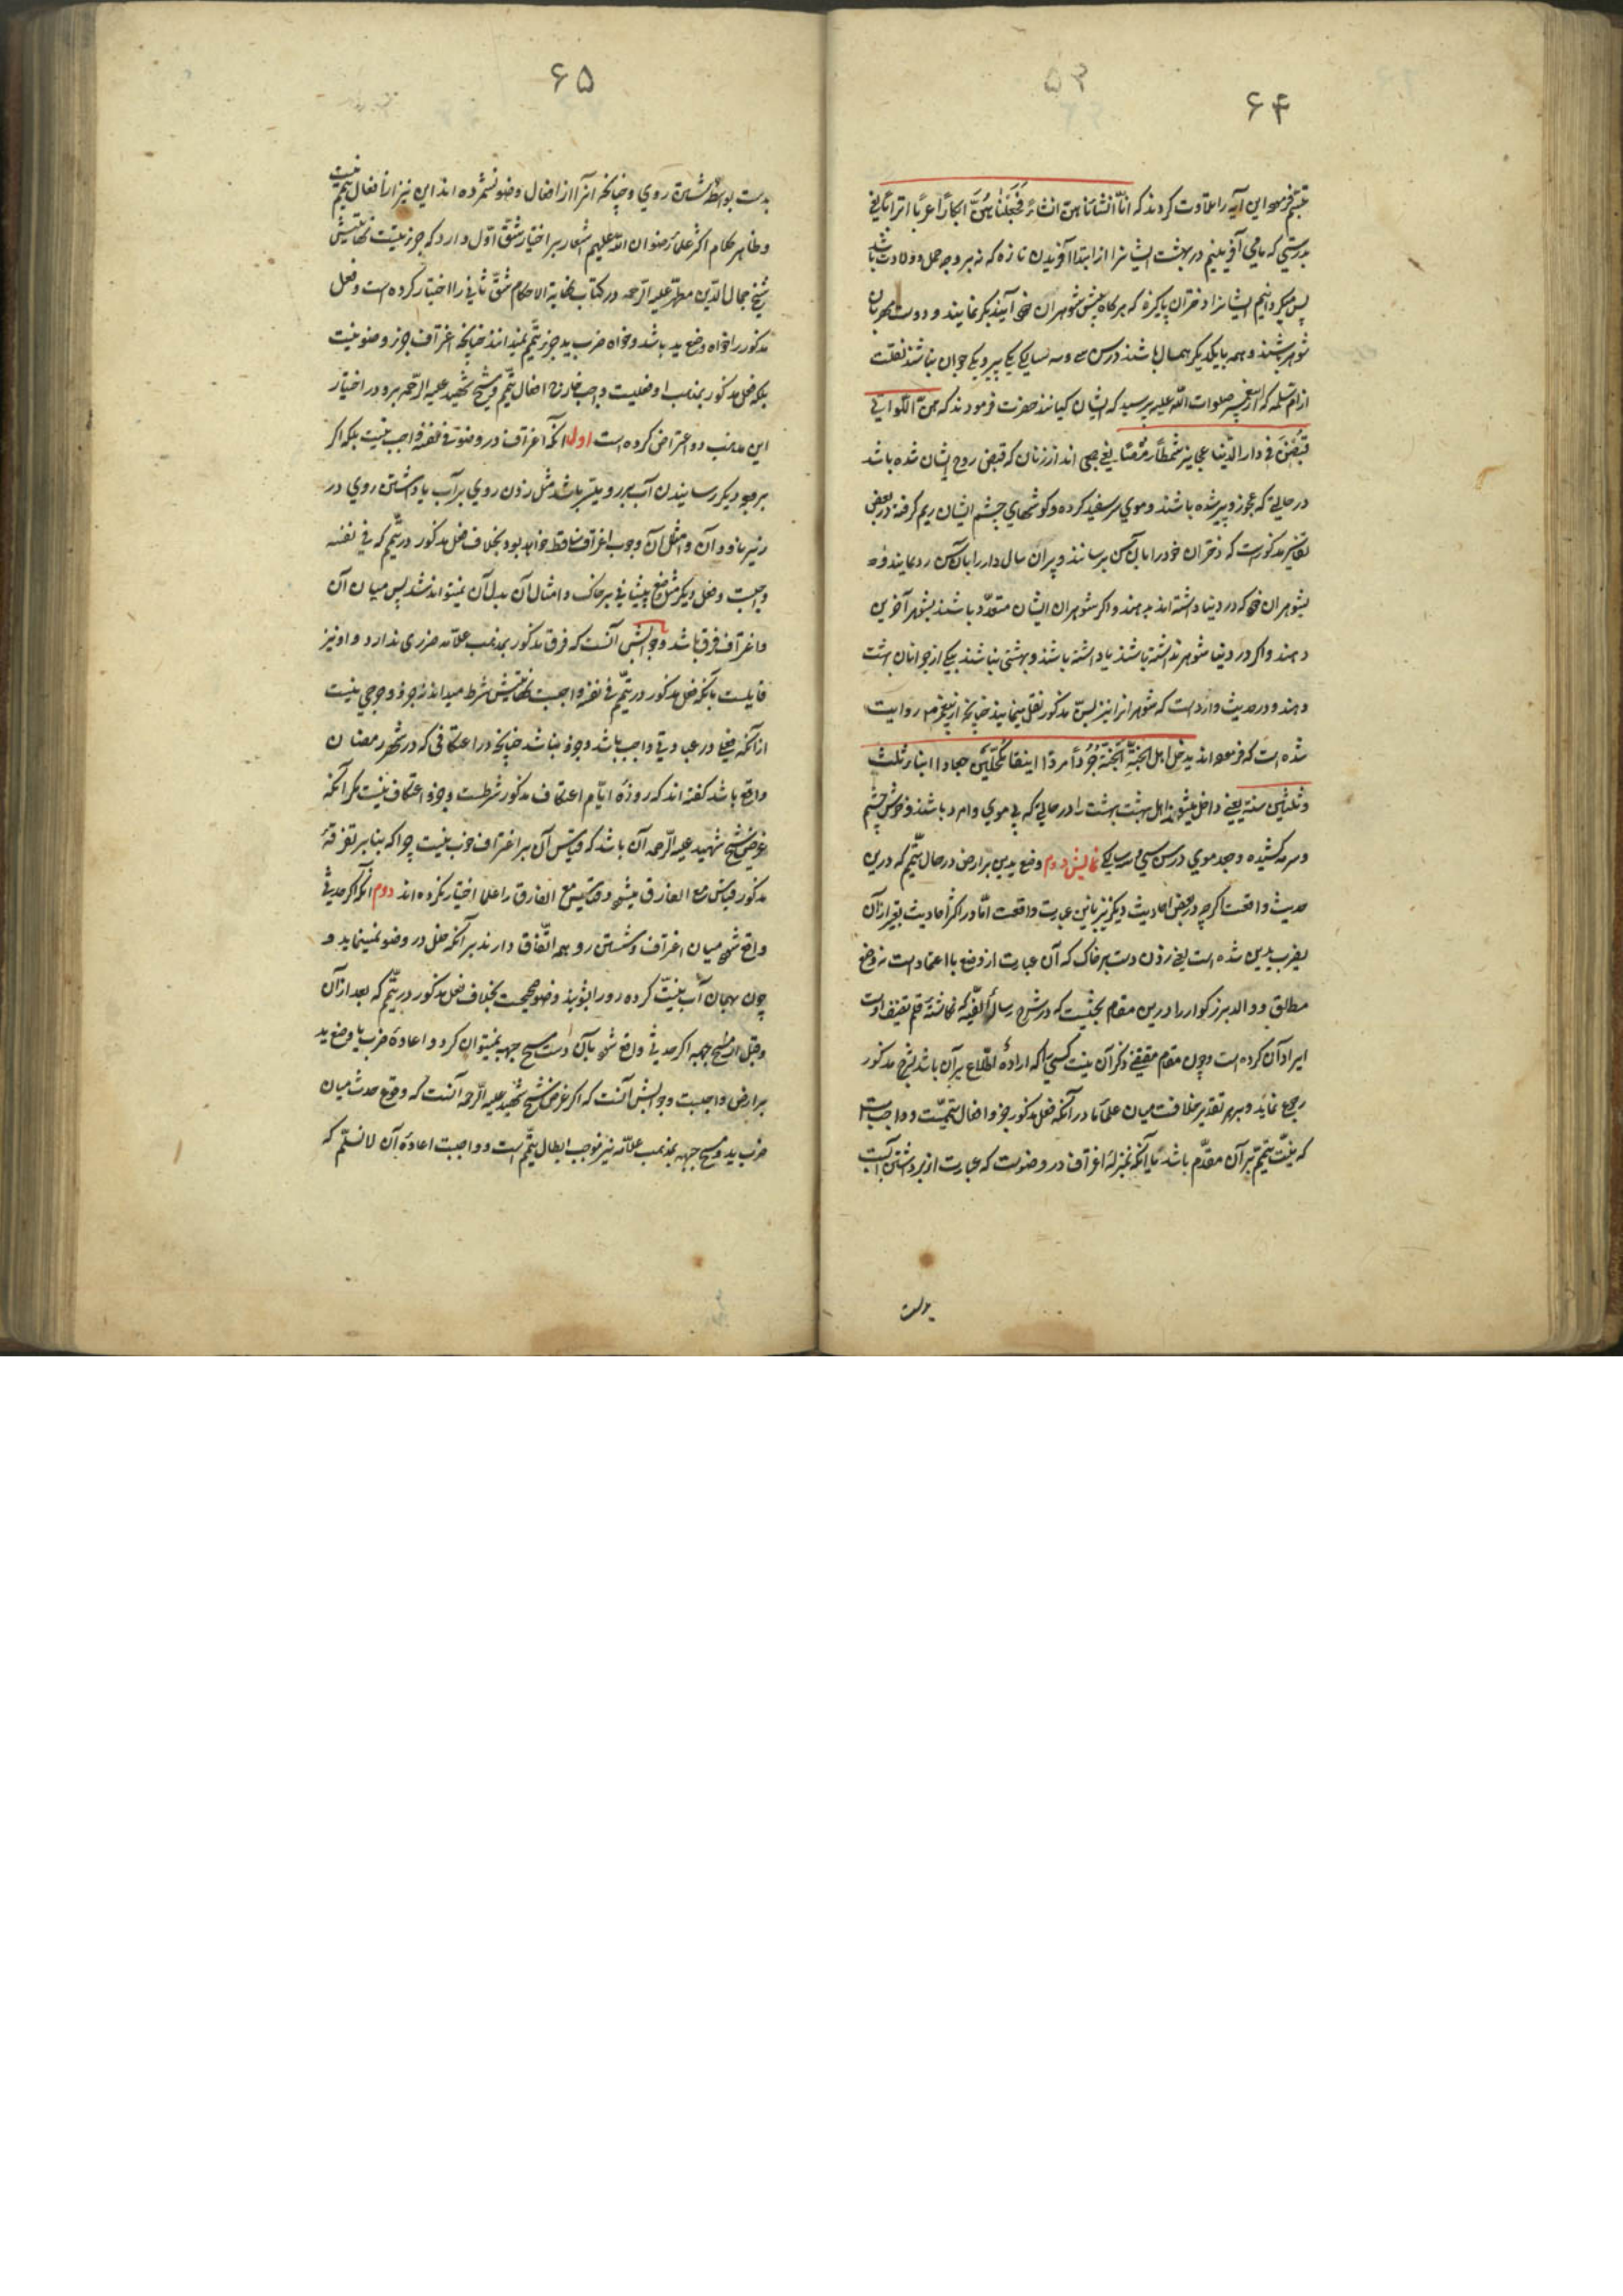 ۶۴
تبسّم فرمود این آیه را تلاوت کردند که انّا انشأناهنّ انشاءً فَجَعَلْناهُنَّ ابکاراً عرباً اتراباً یعنی
بدرستی که ما می آفرینیم در بهشت ایشانرا از ابتدا آفریدن تازه که نه بر وجه حمل و ولادت باشد
پس میگردانیم ایشانرا دختران پاکیزه که هر گاه پیش شوهران خود آیند بکر نمایند و دوست و مهربان
شوهر باشند و همه با یکدیگر همسال باشند در سن سی و سه سالگی یکی پیر و یکی جوان نباشد نقلست
از امّ سلمه که از پیغمبر صلوات اللّه علیه پرسید که ایشان کیانند حضرت فرمودند که هنّ اللّواتی
قُبِضْنَ فی دار الدّنیا عجایز شمطاً رمصاً یعنی جمعی اند از زنان که قبض روح ایشان شده باشد
در حالتی که عجوز و پیر شده باشند و موی سر سفید کرده و گوشهای چشم ایشان ریم گرفته در بعض
تفاسیر مذکورست که دختران خورد را بآن سن برسانند و پیران سال دار را بآن سن رد نمایند و
بشوهران خود که در دنیا داشته اند بدهند و اگر شوهران ایشان متعدّد باشند بشوهر آخرین
دهند و اگر در دنیا شوهر نداشته باشند یا داشته باشند و بهشتی نباشند بیکی از جوانان بهشت
دهند و در حدیث وارد است که شوهرانرا نیز بسنّ مذکور نقل مینمایند چنانچه از پیغمبر م روایت
شده است که فرموده اند یدخل اهل الجنّةِ الجنّةَ جُرُداً مرداً ابیضاً مکحّلین جعاداً ابناء ثلث
و ثلثین سنة یعنی داخل میشوند اهل بهشت بهشت را در حالتی که بی موی و امرد باشند و خوش چشم
و سرمه کشیده و جعد موی در سن سی و سه سالگی نمایش دوم وضع یدین بر ارض در حال تیمّم که درین
حدیث واقعست اگرچه در بعض احادیث دیگر نیز باین عبارت واقعست امّا در اکثر احادیث بغیر از آن
بضرب یدین شده است یعنی زدن دست بر خاک که آن عبارت از وضع با اعتماد است نه وضع
مطلق و والد بزرگوار را درین مقام بحثیست که در شرح رسالهٔ الفیّه که نگاشتهٔ قلم تصنیف اوست
ایراد آن کرده است و چون مقام مقتضی ذکر آن نیست کسی را که ارادهٔ اطّلاع بر آن باشد بشرح مذکور
رجوع نماید و بر هر تقدیر خلافست میان علما در آنکه فعل مذکور جزو افعال تیمّمست و واجب است
که نیّت تیمّم بر آن مقدّم باشد یا آنکه بمنزلهٔ اغتراف در وضوست که عبارت از برداشتن آبست
بدست
۶۵
بدست بواسطهٔ شستن روی و چنانکه آنرا از افعال وضو نشمرده اند این نیز از افعال تیمّم نیست
و ظاهر کلام اکثر علما رضوان اللّه علیهم اشعار بر اختیار شقّ اوّل دارد که جزء نیّت
شیخ جمال الدّین مطهّر علیه الرّحمه در کتاب نهایة الاحکام شقّ ثانی را اختیار کرده است و فعل
مذکور را خواه وضع ید باشد و خواه ضرب ید جزو تیمّم نمیدانند چنانچه اغتراف جزو وضو نیست
بلکه فعل مذکور بمذهب او فعلیست واجب خارج افعال تیمّم و شیخ شهید علیه الرّحمه برو در اختیار
این مذهب دو اعتراض کرده است اول آنکه اغتراف در وضو فی نفسه واجب نیست بلکه اگر
بر وجه دیگر رسانیدن آب برو میسّر باشد مثل زدن روی بر آب یا داشتن روی در
زیر ناودان و امثال آن وجوب اغتراف ساقط خواهد بود بخلاف فعل مذکور در تیمّم که فی نفسه
واجبست و فعل دیگر مثل وضع پیشانی بر خاک و امثال آن بدل آن نمیتواند شد پس میان آن
و اغتراف فرق باشد و جوابش آنست که فرق مذکور بمذهب علّامه ضرری ندارد و او نیز
قایلست بآنکه فعل مذکور در تیمّم فی نفسه واجبست شرط میداند نه جزو و وجهی نیست
از آنکه فعلی در عبادتی واجب باشد و جزو نباشد چنانچه در اعتکافی که در شهر رمضان
واقع باشد گفته اند که روزهٔ ایّام اعتکاف مذکور شرطست و جزو اعتکاف نیست مگر آنکه
غرض شیخ شهید علیه الرّحمه آن باشد که قیاس آن بر اغتراف خوب نیست چراکه بنا بر تفرقهٔ
مذکور قیاس مع الفارق میشود و قیاس مع الفارق را علما اختیار نکرده اند دوم آنکه اگر حدثی
واقع شود میان اغتراف و شستن رو همه اتّفاق دارند بر آنکه خلل در وضو نمینماید و
چون بهمان آب نیّت کرده رو را بشوید وضو صحیحست بخلاف فعل مذکور در تیمّم که بعد از آن
و قبل از مسح جبهه اگر حدثی واقع شود بآن دست مسح جبهه نمیتوان کرد و اعادهٔ ضرب یا وضع ید
بر ارض واجبست و جوابش آنست که اگر غرض شیخ شهید علیه الرّحمه آنست که وقوع حدث میان
ضرب ید و مسح جبهه بمذهب علّامه نیز موجب ابطال تیمّم است و واجبست اعادهٔ آن لا نسلّم که